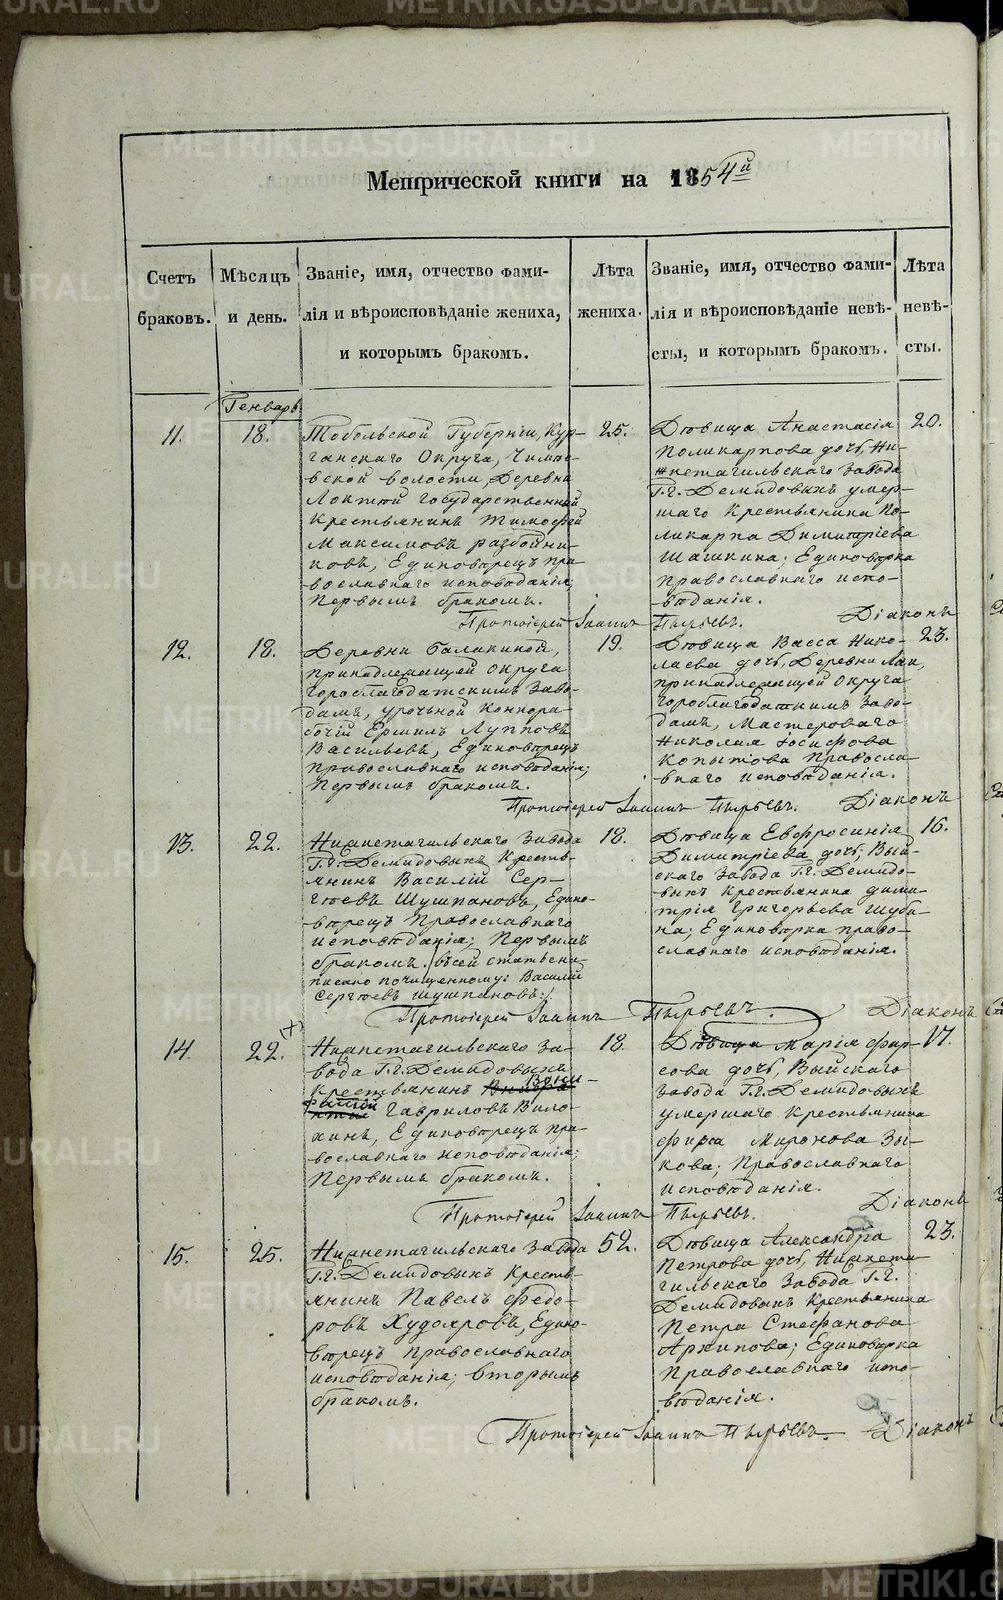 Метрической книги на 1854й
Счетъ браковъ.
Мѣсяцъ и день.
Званіе, имя, отчество фами-
лія и вѣроисповѣданіе жениха,
и которымъ бракомъ.
Лѣта
жениха.
Званіе, имя, отчество фами-
лія и вѣроисповѣданіе невѣ-
сты, и которымъ бракомъ.
Лѣта
невѣ-
сты.
Генварь
11.
18.
Тобольской Губерніи, Кур-
ганскаго Округа,
вской волости, Деревни
Локтей государственный
Крестьянинъ Тимофей
Максимовъ разбойни-
ковъ, Единовѣрецъ пра-
вославнаго исповѣданія;
Первымъ бракомъ.
25.
Дѣвица Анастасія
Поликарпова дочь, Ни-
жнетагильскаго завода
Г.г. Демидовыхъ умер-
шаго Крестьянина По-
ликарпа Димитріева
Шашкина; Единовѣрка
Православнаго испо-
вѣданія.
20.
Протоіерей Іоаннъ Пырьевъ. Діаконъ
12.
18.
Деревни Балакиной,
принадлежащей Округа
Гороблагодатскимъ Заво-
дамъ, урочной Коннора-
бочій Ермилъ Лупповъ
Васильевъ, Единовѣрецъ
Православнаго исповѣданія;
Первымъ бракомъ.
19.
Дѣвица Васса Нико-
лаева дочь, Деревни Лаи,
принадлежащей Округа
Гороблагодатскимъ Заво-
дамъ, Мастероваго
Николая Іосифова
Копытова Правосла-
внаго исповѣданія.
23.
Протоіерей Іоаннъ Пырьевъ. Діаконъ
13.
22.
Нижнетагильскаго Завода
Г.г. Демидовыхъ Кресть-
янинъ Василій Сер-
гѣевъ Шушпановъ, Едино-
вѣрецъ Православнаго
исповѣданія; Первымъ
бракомъ. /:въ сей статьѣ на-
писано по чищенному: Василій
Сергѣевъ Шушпановъ:/
18.
Дѣвица Евфросинія
Димитріева дочь, Вый-
скаго завода Г.г. Демидо-
выхъ Крестьянина Дими-
трія Григорьева Шуби-
на; Единовѣрка право-
славнаго исповѣданія.
16.
Протоіерей Іоаннъ Пырьевъ. Діаконъ
14.
22.
(х)
Нижнетагильскаго За-
вода Г.г. Демидовыхъ
Крестьянинъ Вони-
фатій Гавриловъ Вило-
хинъ, Единовѣрецъ пра-
вославнаго исповѣданія;
Первымъ бракомъ.
18.
Дѣвица Марія Фир-
сова дочь, Выйскаго
завода Г.г. Демидовыхъ
умершаго Крестьянина
Фирса Миронова Зы-
кова; Православнаго
исповѣданія.
17.
Протоіерей Іоаннъ Пырьевъ. Діаконъ
15.
25.
Нижнетагильскаго завода
Г.г. Демидовыхъ Кресть-
янинъ Павелъ Федо-
ровъ Худояровъ, Едино-
вѣрецъ православнаго
исповѣданія; вторымъ
бракомъ.
52.
Дѣвица Александра
Петрова дочь, Нижнета-
гильскаго завода Г.г.
Демидовыхъ Крестьянина
Петра Стефанова
Архипова; Единовѣрка
Православнаго испо-
вѣданія.
23.
Протоіерей Іоаннъ Пырьевъ. Діаконъ
METRIKI.GASO-URAL.RU